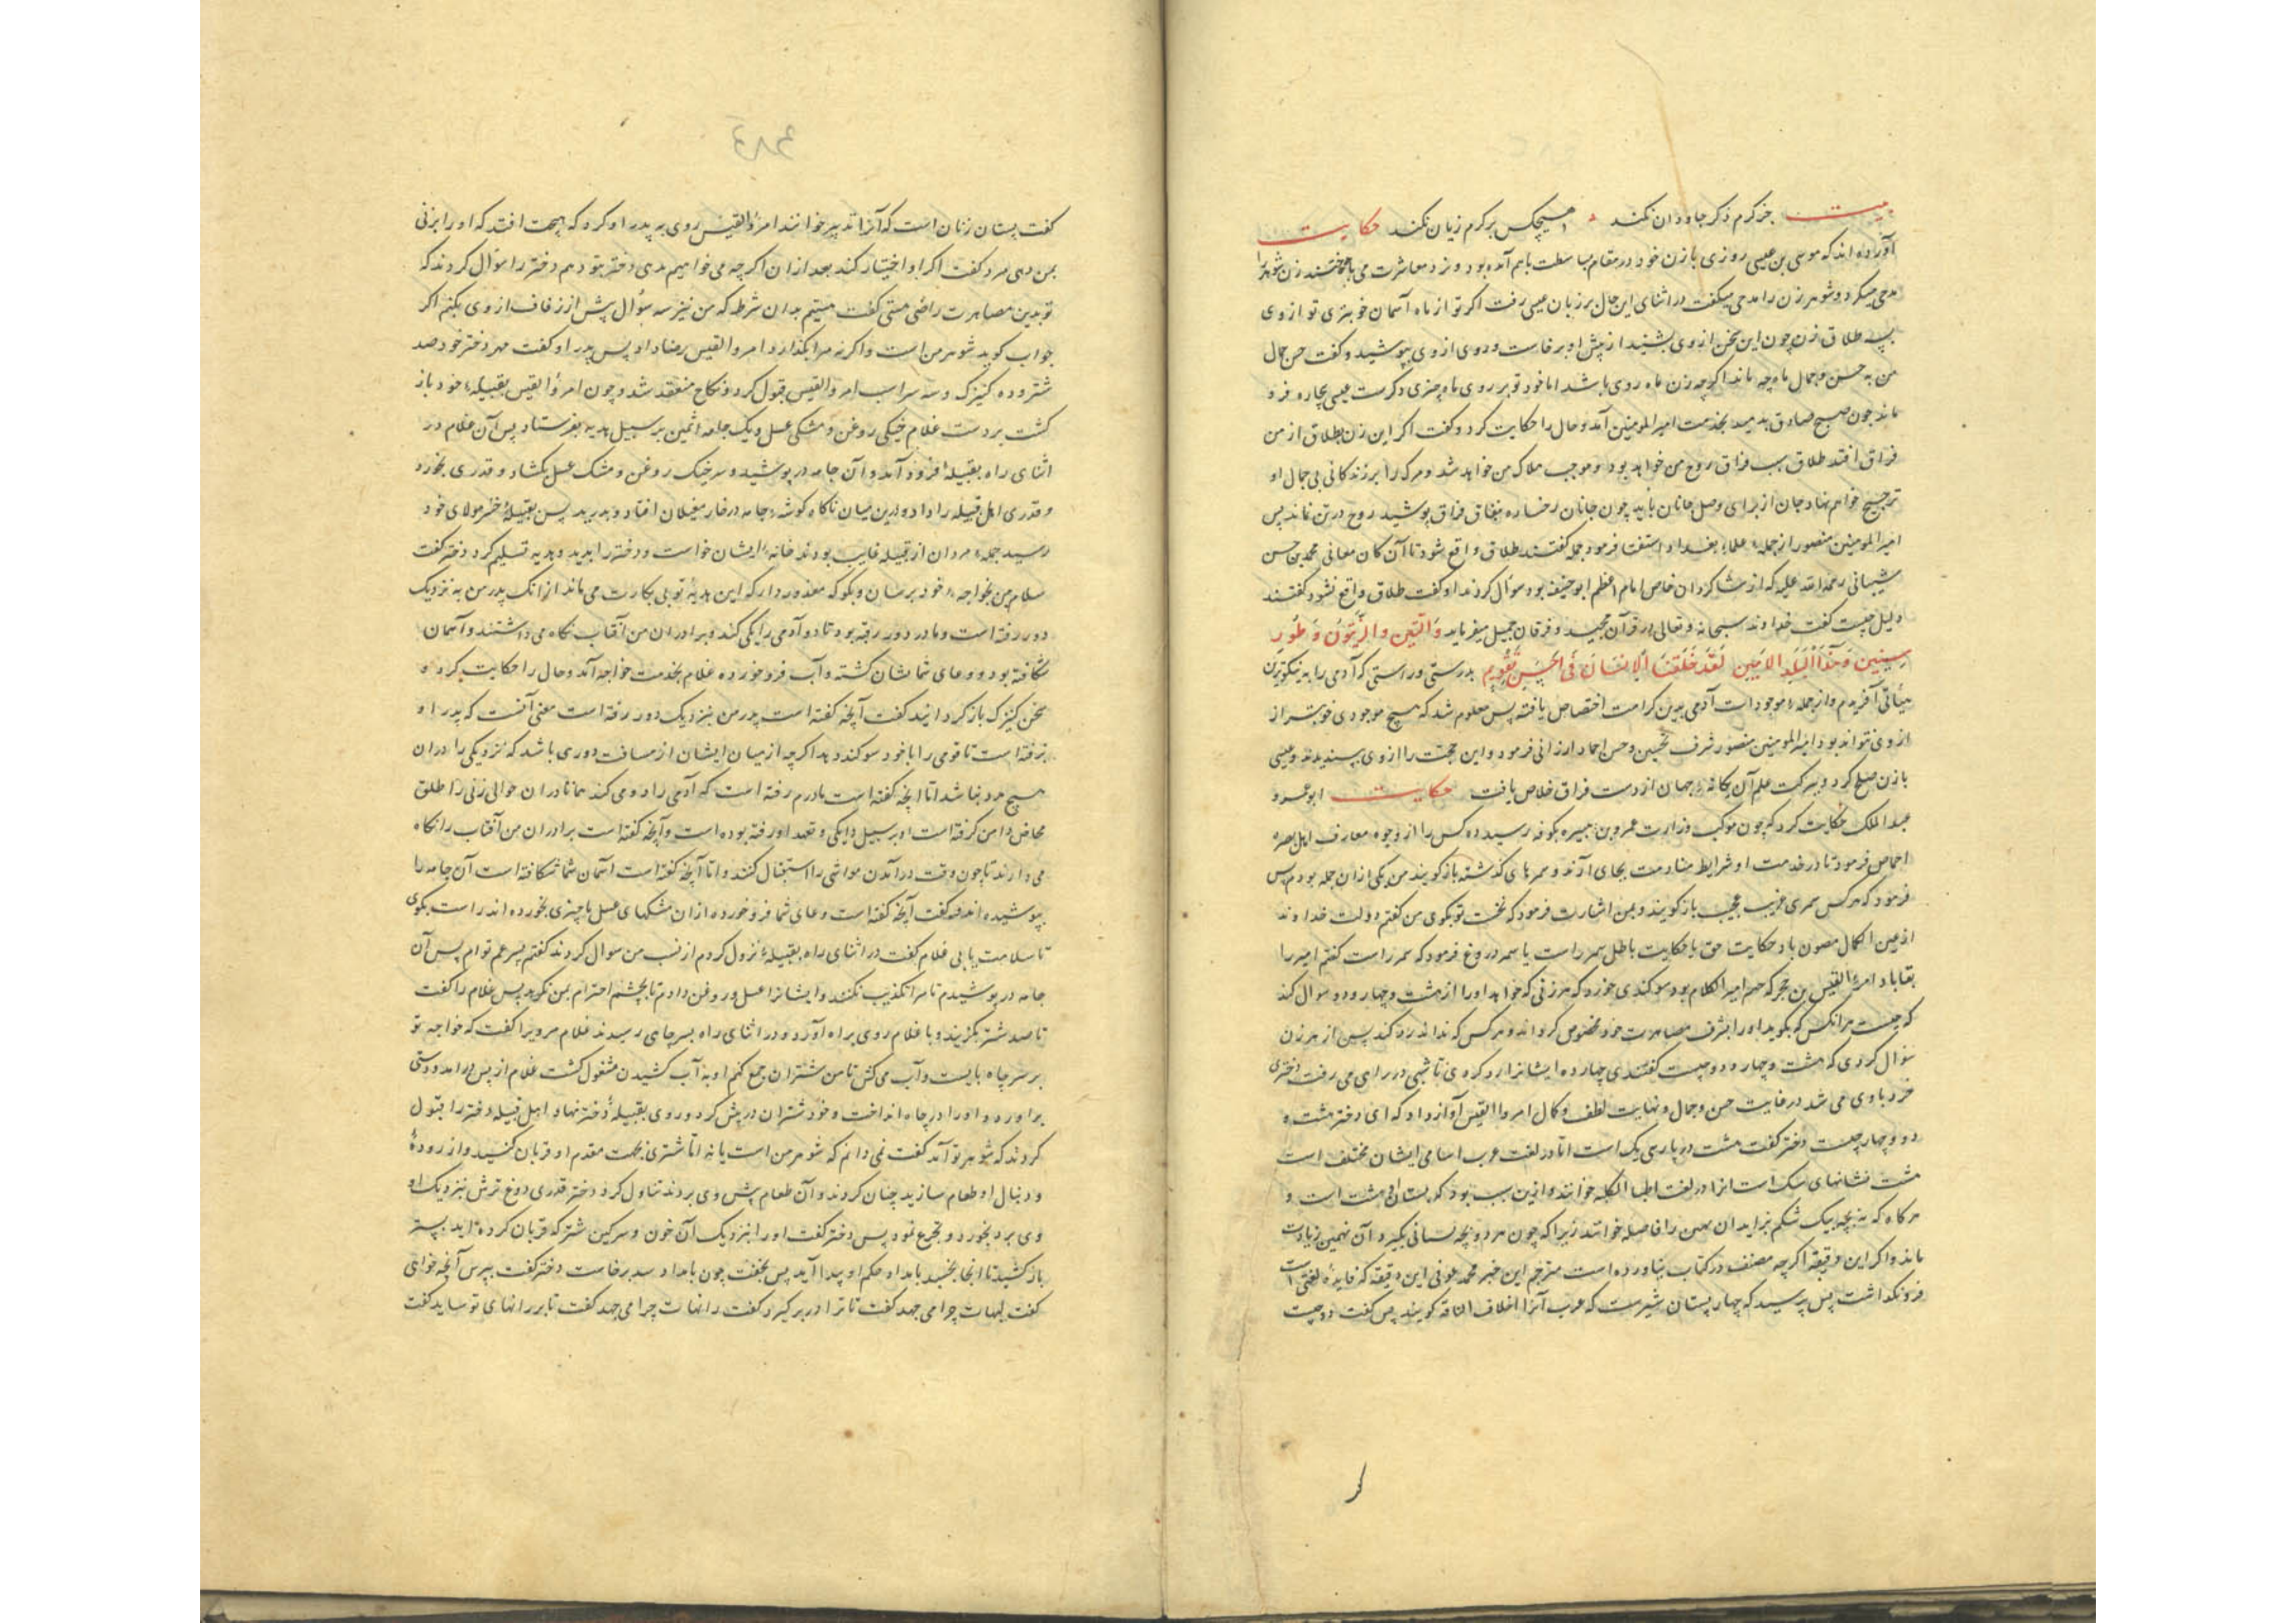 بیت جز کرم ذکر جاودان نکند هیچکس بر کرم زیان نکند حکایت
آورده اند که موسی بن عیسی روزی با زن خود در مقام مباسطت باهم آمده بود و نرد معاشرت می باختند زن شوهر را
مدحی میکرد و شوهر زن را مدحی میکفت در اثنای این حال بر زبان عیسی رفت اکر تو از ماه آسمان خوبتری تو از وی
بسه طلاق زن چون این سخن از وی بشنید از پیش او برخاست و روی از وی بپوشید و کفت حسن حال
من به حسن و جمال ماه چه ماند اکرچه زن ماه روی باشد اما خود تو بر روی ماه چیزی دکرست عیسی بیچاره فرو
ماند چون صبح صادق بدمید بخدمت امیرالمومنین آمد و حال را حکایت کرد و کفت اکر این زن بطلاق از من
فراق افتد طلاق سبب فراق روح من خواهد بود و موجب هلاک من خواهد شد و مرک را بر زندکانی بی جمال او
ترجیح خواهم نهاد جان از برای وصل جانان باید چون جانان رخساره بنقاق فراق پوشید روح در تن نماند پس
امیرالمومنین منصور از جمله علماء بغداد استفتا فرمود جمله کفتند طلاق واقع شود تا آن کان معانی محمد بن حسن
شیبانی رحمة الله علیه که از شاکردان خاص امام اعظم ابوحنیفه بود سوال کردند او کفت طلاق واقع نشود کفتند
دلیل چیست کفت خداوند سبحانه و تعالی در قرآن مجید و فرقان جمیل میفرماید وَالتّین وَالزّیتُون وَطُورِ
سِینین وَهذَا البَلَدِ الاَمین لَقَد خَلَقنَا الاِنسَانَ فی اَحسَنِ تَقویم بدرستی و راستی که آدمی را به نیکوترین
هیأتی آفریدم و از جمله موجودات آدمی بدین کرامت اختصاص یافته پس معلوم شد که هیچ موجودی خوبتر از
از وی نتواند بود امیرالمومنین منصور شرف تحسین و حسن احماد ارزانی فرمود و این حجت را از وی بپسندیدند و عیسی
با زن صلح کرد و ببرکت علم آن یکانه جهان از دست فراق خلاص یافت حکایت ابو عمرو
عبد الملک حکایت کرد که چون موکب وزارت عمرو بن هبیره بکوفه رسید ده کس را از وجوه معارف اهل بصره
احماص فرمود تا در خدمت او شرایط منادمت بجای آرند و سمرهای کذشته باز کویند من یکی از ان جمله بودم پس
فرمود که هر کس سمری غریب عجیب باز کویند و بمن اشارت فرمود که نخست تو بکوی من کفتم دولت خداوند
از عین الکمال مصون باد حکایت حق یا حکایت باطل سمر راست یا سمر دروغ فرمود که سمر راست کفتم امیر را
بقا باد امرءالقیس بن حجر که هم امیر الکلام بود سوکندی خورد که هر زنی که خواهد او را از هشت و چهار و دو سوال کند
که چیست هر انکس که بکوید او را بشرف مصاهرت خود مخصوص کرداند و هر کس که نداند رد کند پس از هر زن
سؤال کردی که هشت و چهار و دو چیست کفتندی چهارده ایشانرا رد کردی تا شبی در راهی می رفت دختری
خرد با وی می شد در غایت حسن و جمال و نهایت لطف و کمال امروالقیس آواز داد که ای دختر هشت و
دو و چهار چیست دختر کفت هشت در پارسی یک است اما در لغت عرب اسامی ایشان مختلف است
هشت نشانهای سک است انرا در لغت اطباءالکلبه خوانند و ازین سبب بود که پستان او هشت است و
هر کاه که نه بچه بیک شکم بزاید ان نهمین را فاصله خوانند زیرا که چون هر دو بچه پستانی بکیرد آن نهمین زیادت
ماند و اکر این دقیقه اکرچه مصنف در کتاب نیاورده است مترجم این خبر محمد عوفی این دقیقه که فایده لغتی است
فرونکذاشت پس پرسید که چهار پستان شیرست که عرب آنرا اخلاف الناقه کویند پس کفت دو چیست
کفت پستان زنان است که آنرا تدییر خوانند امرءالقیس روی به پدر او کرد که بهمت افتد که او را بزنی
بمن دهی مرد کفت اکر او اختیار کند بعد ازان اکرچه می خواهیم بدهی دختر بتو دهم دختر را سؤال کردند که
تو بدین مصاهرت راضی هستی کفت هستم بدان شرط که من نیز سه سؤال پیش از زفاف از وی بکنم اکر
جواب کوید شوهر من است واکرنه مرا بکذارد امروالقیس رضا داد پس پدر او کفت مهر دختر خود صد
شتر و ده کنیزک و سه سر اسب امروالقیس قبول کرد و نکاح منعقد شد و چون امرءالقیس بقبیله خود باز
کشت بر دست غلام خیکی روغن و مشکی عسل و یک جامه اثمین بر سبیل هدیه بفرستاد پس آن غلام در
اثنای راه بقبیله فرود آمد و آن جامه در پوشید و سر خیک روغن و مشک عسل بکشاد و قدری بخورد
و قدری اهل قبیله را داد و درین میان ناکاه کوشه جامه در خار مغیلان افتاد و بدرید پس بقبیله خسر مولای خود
رسید جمله مردان از قبیله غایب بودند خانه ایشان خواست و دختر را بدید و هدیه تسلیم کرد دختر کفت
سلام من بخواجه خود برسان و بکو که معذور دار که این هدیه تو بی بکارت می ماند از انک پدر من به نزدیک
دور رفته است و مادر دور رفته بود تا دو آدمی را یکی کند و برادران من آفتاب نکاه می داشتند و آسمان
شکافته بود و وعای شما نشان کشته و آب فرو خورده غلام بخدمت خواجه آمد و حال را حکایت کرد و
سخن کنیزک باز کردانید کفت آنچه کفته است پدر من بنزدیک دور رفته است معنی آنست که پدر او
برفته است تا قومی را با خود سوکند دهد اکرچه از میان ایشان از مسافت دوری باشد که نزدیکی را دران
هیچ مرد نباشد اما انچه کفته است مادرم رفته است که آدمی را دو می کند همانا دران حوالی زنی را طلق
مخاض دامن کرفته است او بر سبیل دایکی و تعهد او رفته بوده است و آنچه کفته است برادران من آفتاب را نکاه
می دارند تا چون وقت در آمدن مواشی را استقبال کنند و اما آنچه کفته است آسمان شما شکافته است آن جامه را
بپوشیده اند و کفت آنچه کفته است وعای شما فرو خورده ازان مشکهای عسل با چیزی بخورده اند راست بکوی
تا سلامت یابی غلام کفت در اثنای راه بقبیله نزول کردم از نسب من سوال کردند کفتم پسر عم توام پس آن
جامه در پوشیدم تا مرا تکذیب نکنند و ایشانرا عسل و روغن دادم تا بچشم احترام بمن نکرند پس غلام را کفت
تا صد شتر بکزیند و با غلام روی براه آورد و در اثنای راه بسر چاهی رسیدند غلام مرویرا کفت که خواجه تو
بر سر چاه بایست و آب می کش تا من شتران جمع کنم او به آب کشیدن مشغول کشت غلام از پس درامد و دستی
براورد و او را در چاه انداخت و خود شتران در پیش کرد و روی بقبیله دختر نهاد اهل قبیله دختر را قبول
کردند که شوهر تو آمد کفت نمی دانم که شوهر من است یا نه اما شتری بجهت مقدم او قربان کنید و از روده
و دنبال او طعام سازید چنان کردند و آن طعام پیش وی بردند تناول کرد دختر قدری دوغ ترش بنزدیک او
وی برد بخورد و تجرع نمود پس دختر کفت او را بنزدیک آن خون و سرکین شتر که قربان کرده اید بستر
باز کشید تا انجا بخسبد بامداد حکم او پیدا آید پس بخفت چون بامداد سر برخاست دختر کفت بپرس آنچه خواهی
کفت لبهات چرا می جهد کفت تا ترا در بر کیرد کفت رانهات چرا می جهد کفت تا بر رانهای تو ساید کفت